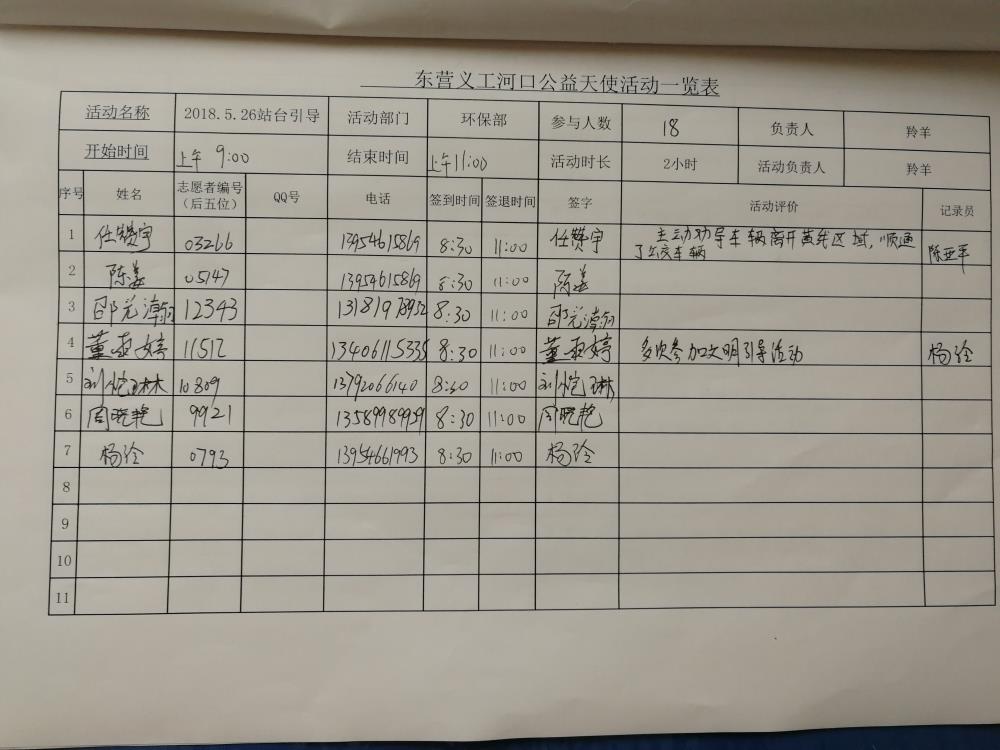 东营义工河口公益天使活动一览表
活动名称 2018.5.26站台引导 活动部门 环保部 参与人数 18 负责人 羚羊
开始时间 上午 9:00 结束时间 上午11:00 活动时长 2小时 活动负责人 羚羊
序号 姓名 志愿者编号（后五位） QQ号 电话 签到时间 签退时间 签字 活动评价 记录员
1 任赞宇 03266 13954615869 8:30 11:00 任赞宇 主动劝导车辆离开黄线区域，顺通
了公交车辆 陈亚军
2 陈姜 05147 13954615869 8:30 11:00 陈姜
3 邵元漳 12343 8:30 11:00 邵元漳
4 董亚婷 11512 13406115335 8:30 11:00 董亚婷 多次参加文明引导活动 杨玲
5 刘恺琳 10809 13792066140 8:30 11:00 刘恺琳
6 周晓艳 9921 13589989959 8:30 11:00 周晓艳
7 杨玲 0793 13954661993 8:30 11:00 杨玲
8
9
10
11